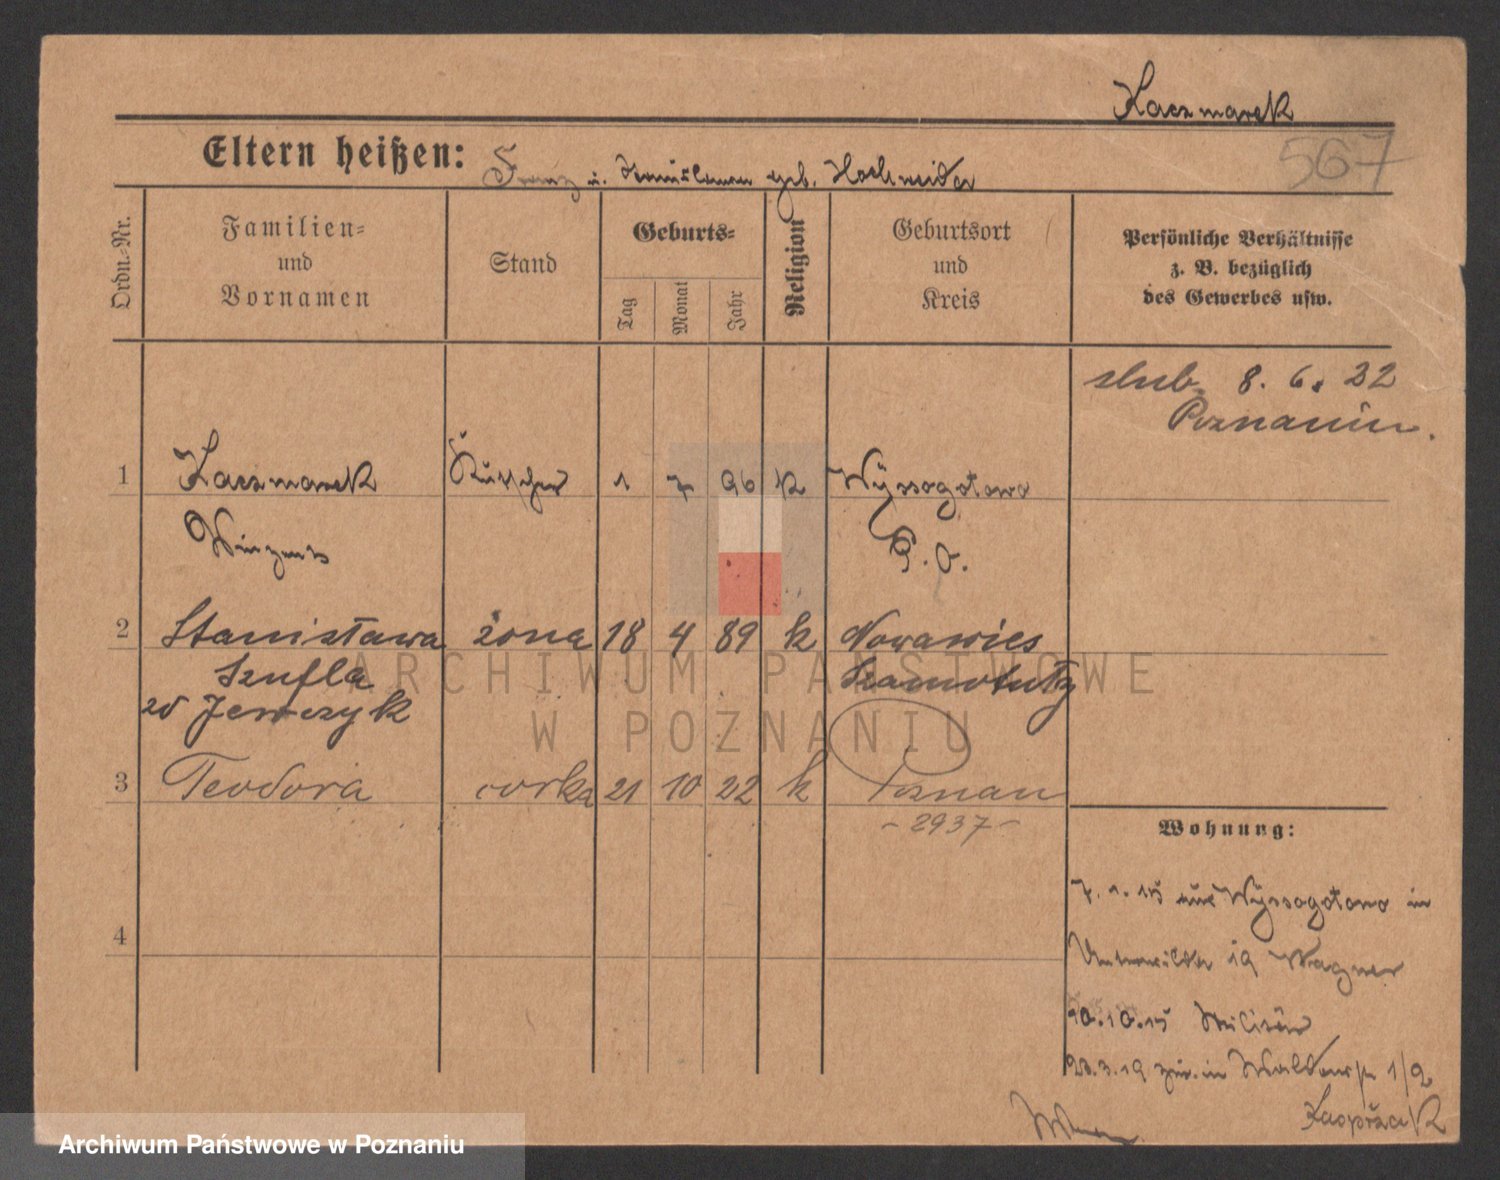 Kaczmarek
567
Eltern heißen: Franz u. geb.
Ordn.-Nr.
Familien- und Vornamen
Stand
Geburts-
Tag
Monat
Jahr
Religion
Geburtsort und Kreis
Persönliche Verhältnisse
z. B. bezüglich
des Gewerbes usw.
ślub 8. 6. 22
Poznaniu.
1 Kaczmarek Kutscher 1 7 96 K Wyssogotowo
Winzent P. O.
2 Stanisława żona 18 4 89 k Nowawies
Szufla Szamotuły
zd Jewczyk
3 Teodora corka 21 10 22 k Poznan
- 2937 -
4
Wohnung:
7. 1. 15 aus Wyssogotowo in
Unterwilda 19 Wagner
10.15 Militär
3.19 zur. in 1/2
Kasprzak
ARCHIWUM PAŃSTWOWE
W POZNANIU
Archiwum Państwowe w Poznaniu